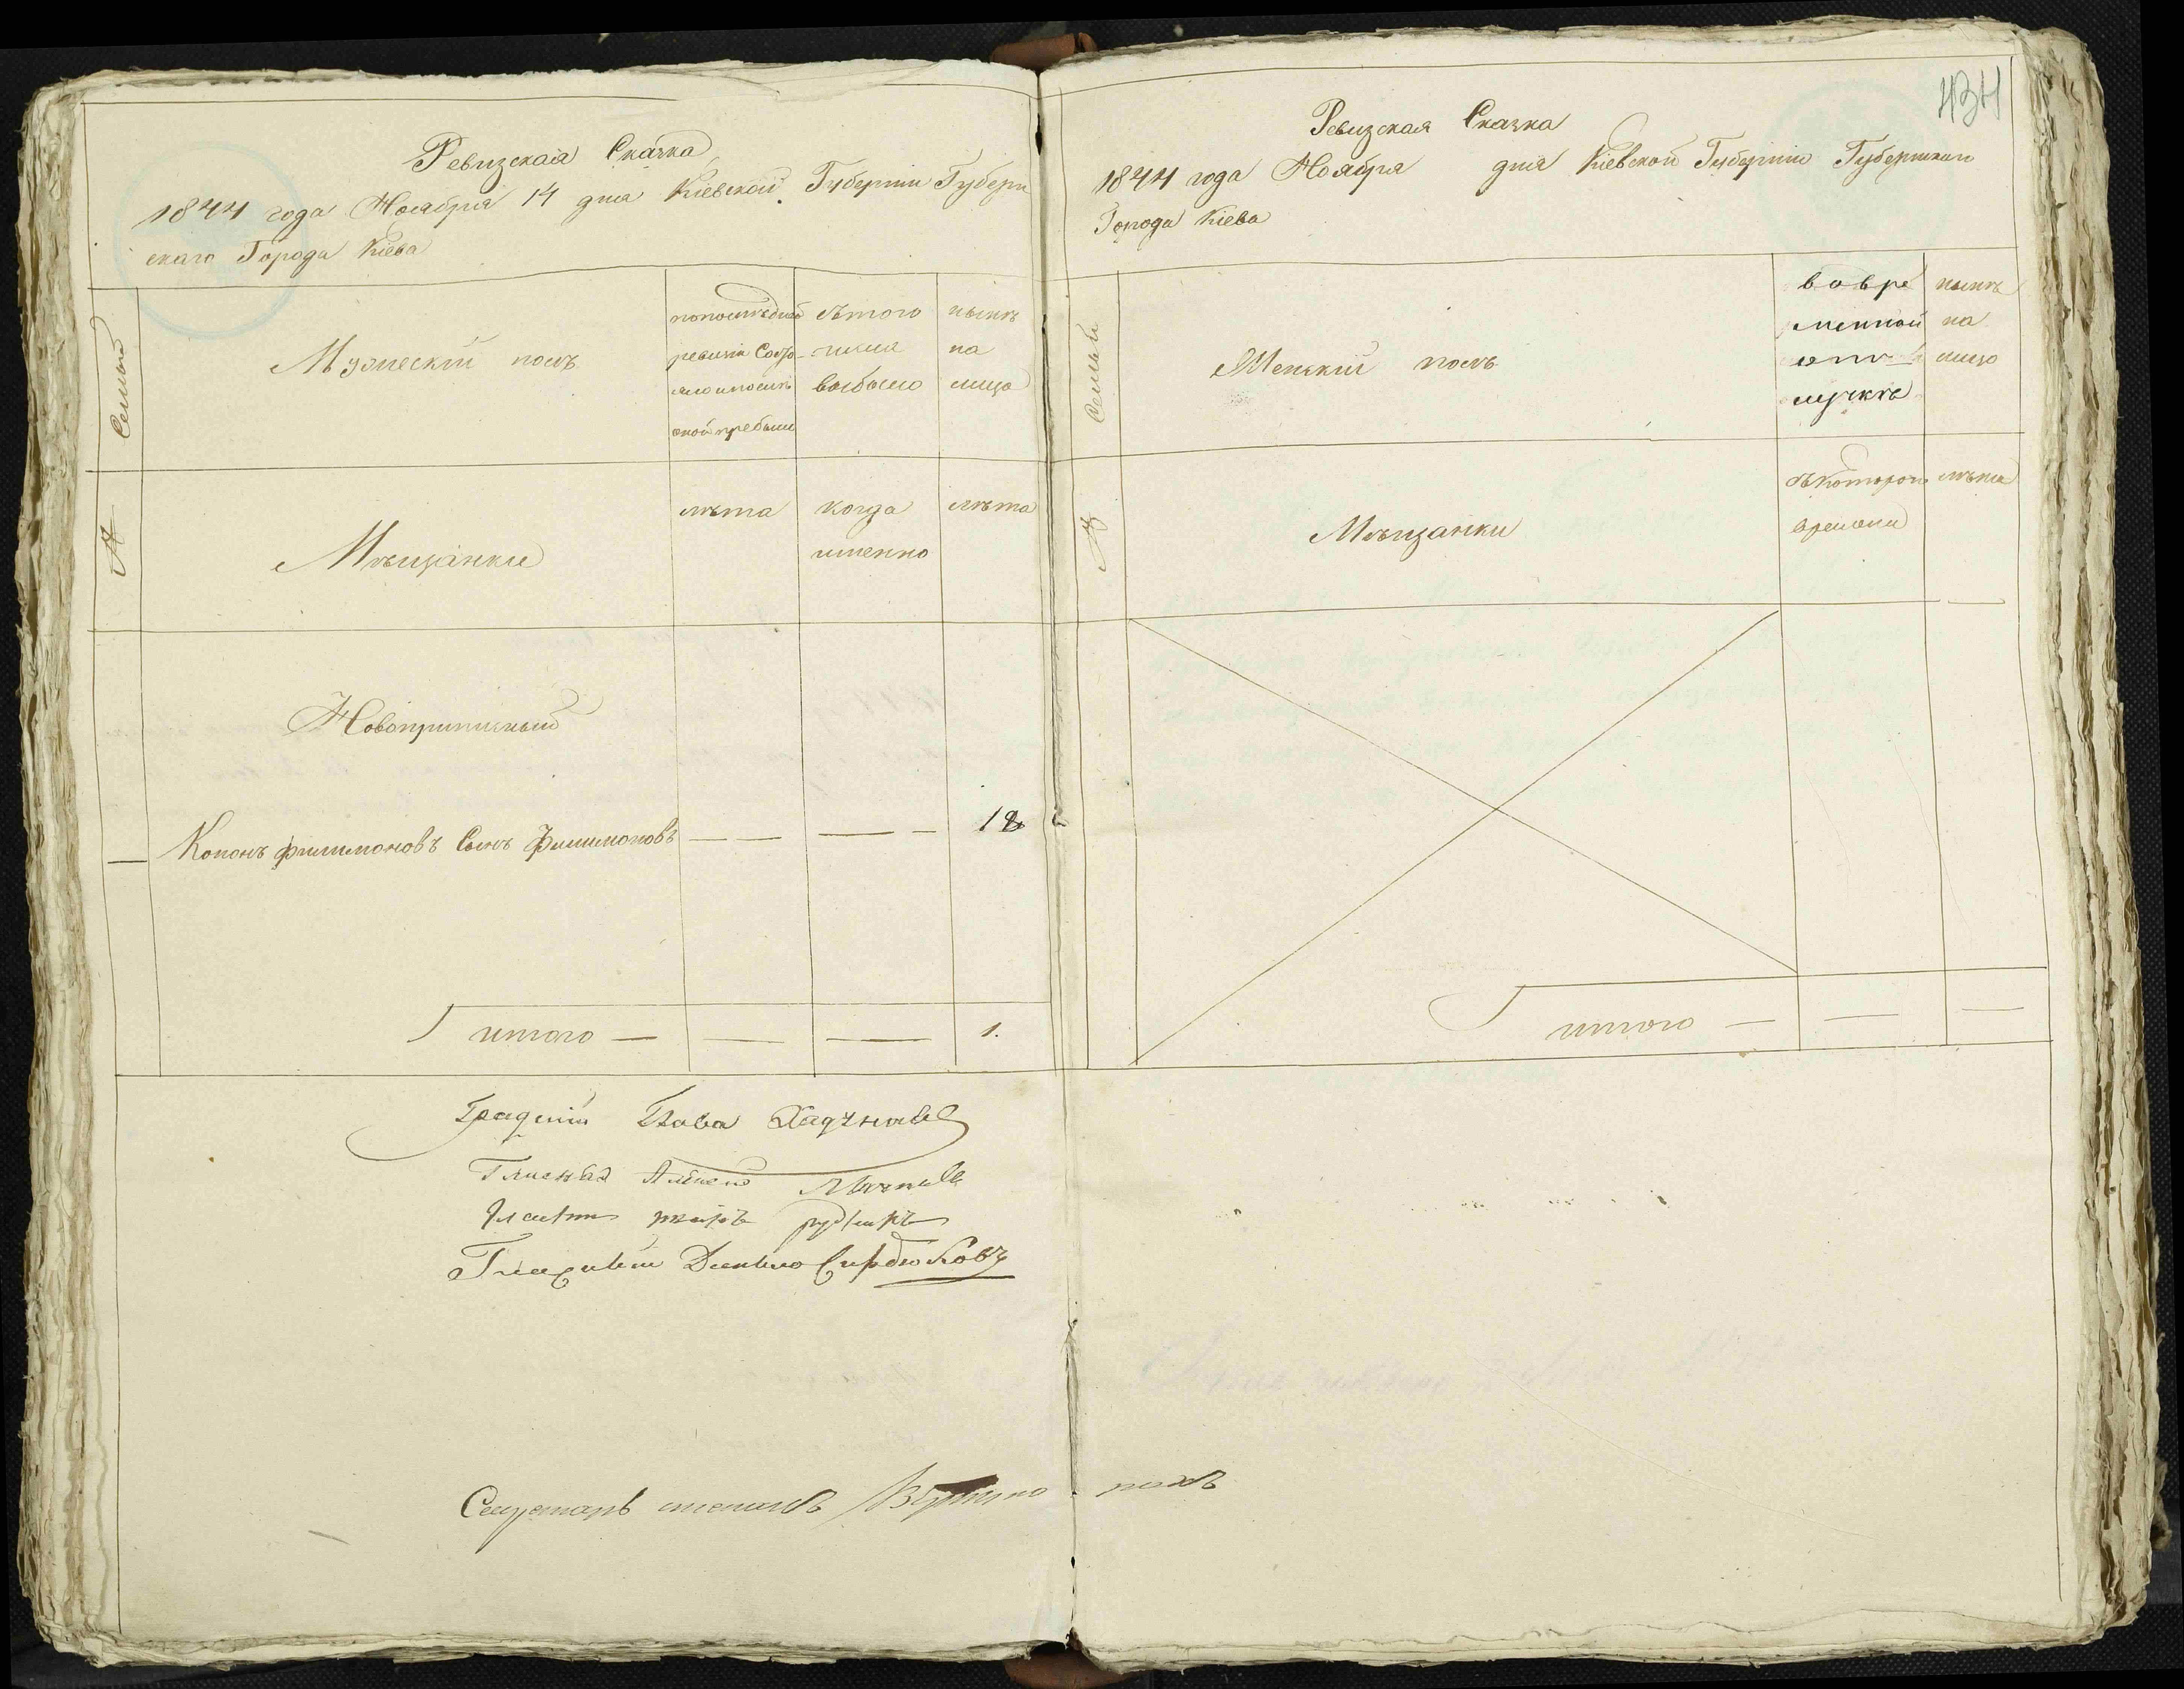 Ревизская Сказка
1844 года Ноября 14 дня Кіевской Губерніи Губерн
скаго Города Кіева
№ Семьи
Мужескій полъ
по последней
ревизіи Состо-
яло и после
оной прибыло
Изъ того
числа
выбыло
ныне
на
лицо
Мѣщанки
лѣта
когда
именно
лѣта
Новоприписный
— Кононъ Филимоновъ Сынъ Филимоновъ — — — — 18
итого — — — 1.
Градскій Глава Ходуновъ
Гласный
Гласный
Гласный Данило Сердюковъ
Секретарь
434
Ревизская Сказка
1844 года Ноября дня Кіевской Губерніи Губернскаго
Города Кіева
№ Семьи
Женскій полъ
во вре
менной
отлучкѣ
ныне
на
лицо
Мѣщанки
съ которого
времени
лѣта
итого — — —